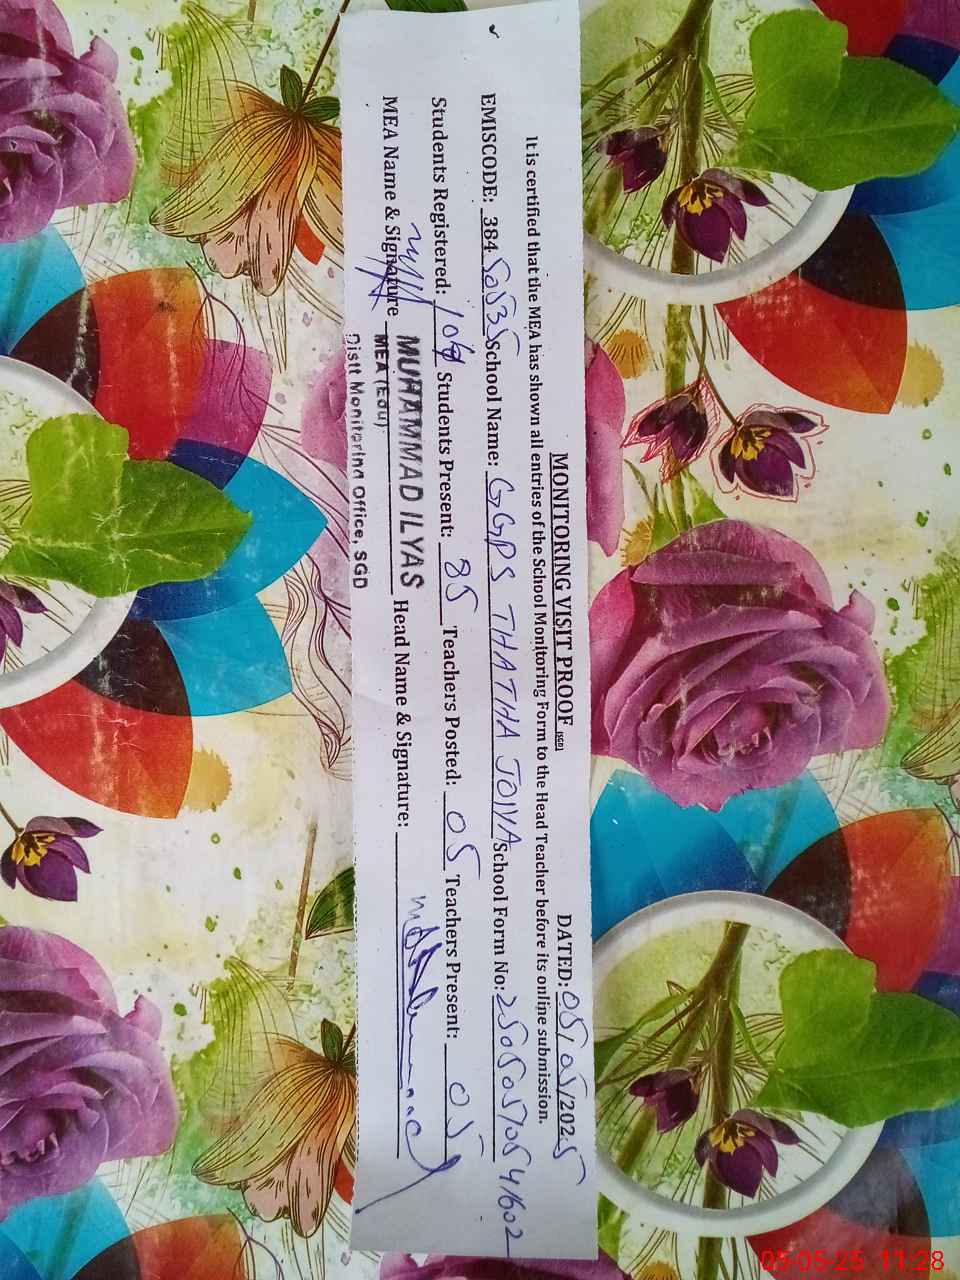 MONITORING VISIT PROOF (SGD) DATED: 05/05/2025
It is certified that the MEA has shown all entries of the School Monitoring Form to the Head Teacher before its online submission.
EMISCODE: 384 50535 School Name: GGPS THATHA JOIYA School Form No: 25050570541602
Students Registered: 104 Students Present: 85 Teachers Posted: 05 Teachers Present: 05
MEA Name & Signature MUHAMMAD ILYAS Head Name & Signature:
MEA (Edu)
Distt Monitoring Office, SGD
05-05-25 11:28